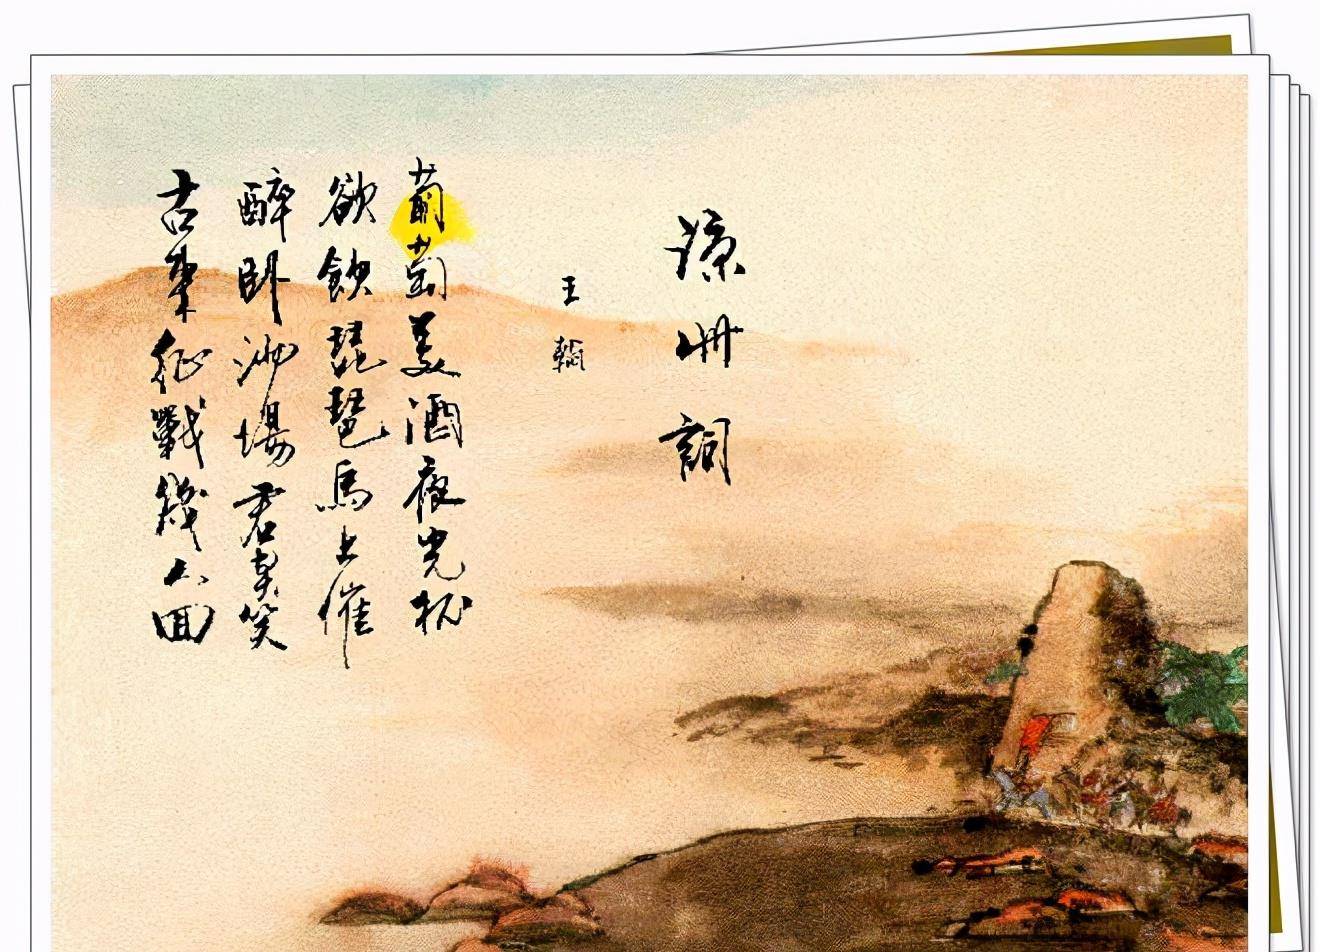 凉州詞
王翰
葡萄美酒夜光杯
欲飲琵琶馬上催
醉卧沙場君莫笑
古来征戰幾人回